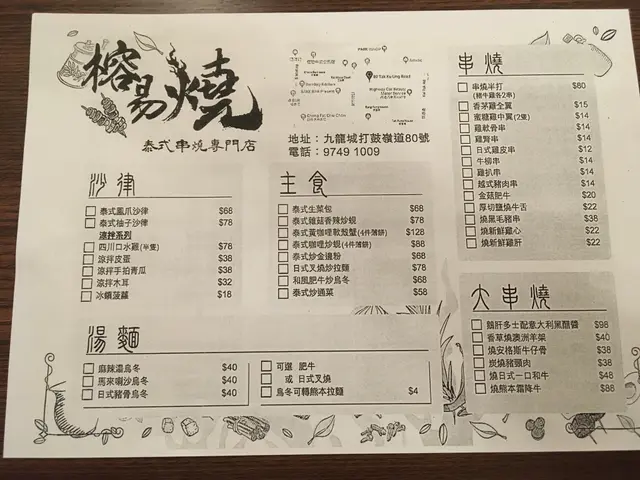 榕易燒
泰式串燒專門店
地址：九龍城打鼓嶺道80號
電話：9749 1009
沙律
泰式鳳爪沙律 $68
泰式柚子沙律 $78
涼拌系列
四川口水雞(半隻) $78
涼拌皮蛋 $38
涼拌手拍青瓜 $38
涼拌木耳 $32
冰鎮菠蘿 $18
主食
泰式生菜包 $68
泰式雜菇香辣炒蜆 $78
泰式黃咖哩軟殼蟹(4件薄餅) $128
泰式咖哩炒蜆(4件薄餅) $88
泰式炒金邊粉 $68
日式叉燒炒拉麵 $78
和風肥牛炒烏冬 $68
泰式炒通菜 $58
湯麵
麻辣湯烏冬 $40
馬來喇沙烏冬 $40
日式豬骨烏冬 $40
可選 肥牛
或 日式叉燒
烏冬可轉熊本拉麵 $4
串燒
串燒半打 $80
(豬牛雞各2串)
香茅雞全翼 $15
蜜糖雞中翼(2隻) $14
雞軟骨串 $14
雞腎串 $14
日式雞皮串 $12
牛柳串 $14
雞扒串 $14
越式豬肉串 $14
金菇肥牛 $20
厚切鹽燒牛舌 $22
燒黑毛豬串 $38
燒新鮮雞心 $22
燒新鮮雞肝 $22
大串燒
鵝肝多士配意大利黑醋醬 $98
香草燒澳洲羊架 $40
燒安格斯牛仔骨 $38
炭燒豬頸肉 $38
燒日式一口和牛 $48
燒熊本霜降牛 $88